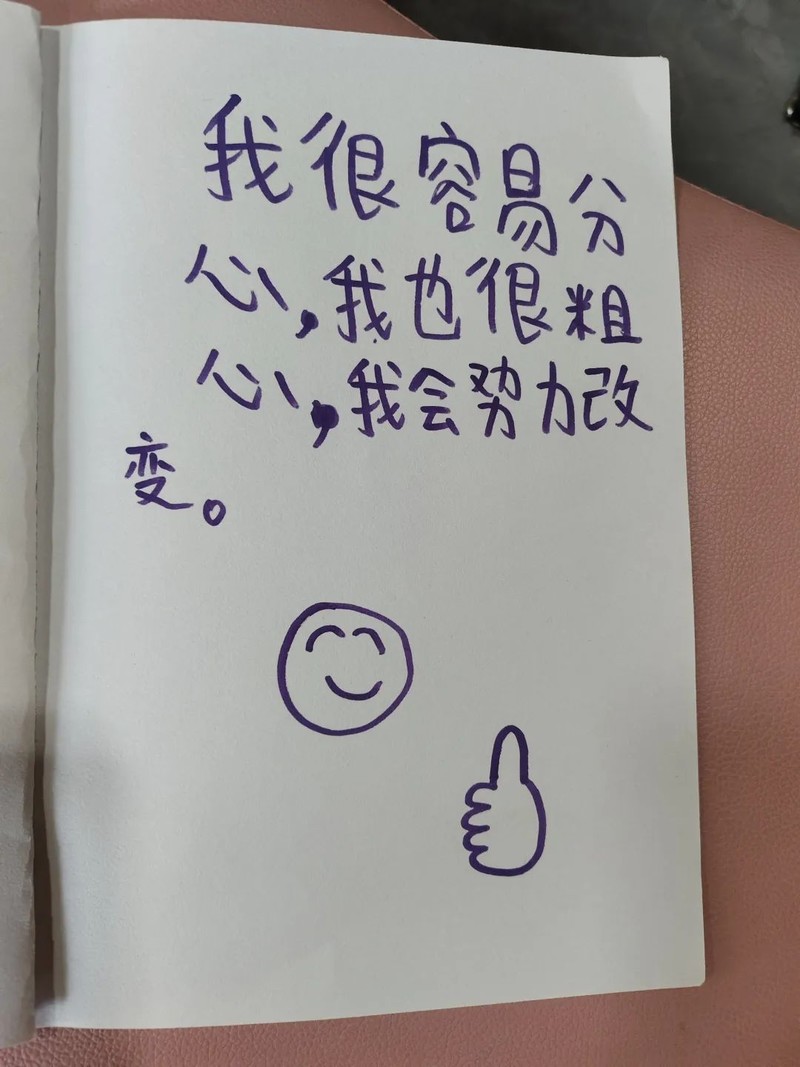 我很容易分
心,我也很粗
心,我会努力改
变。